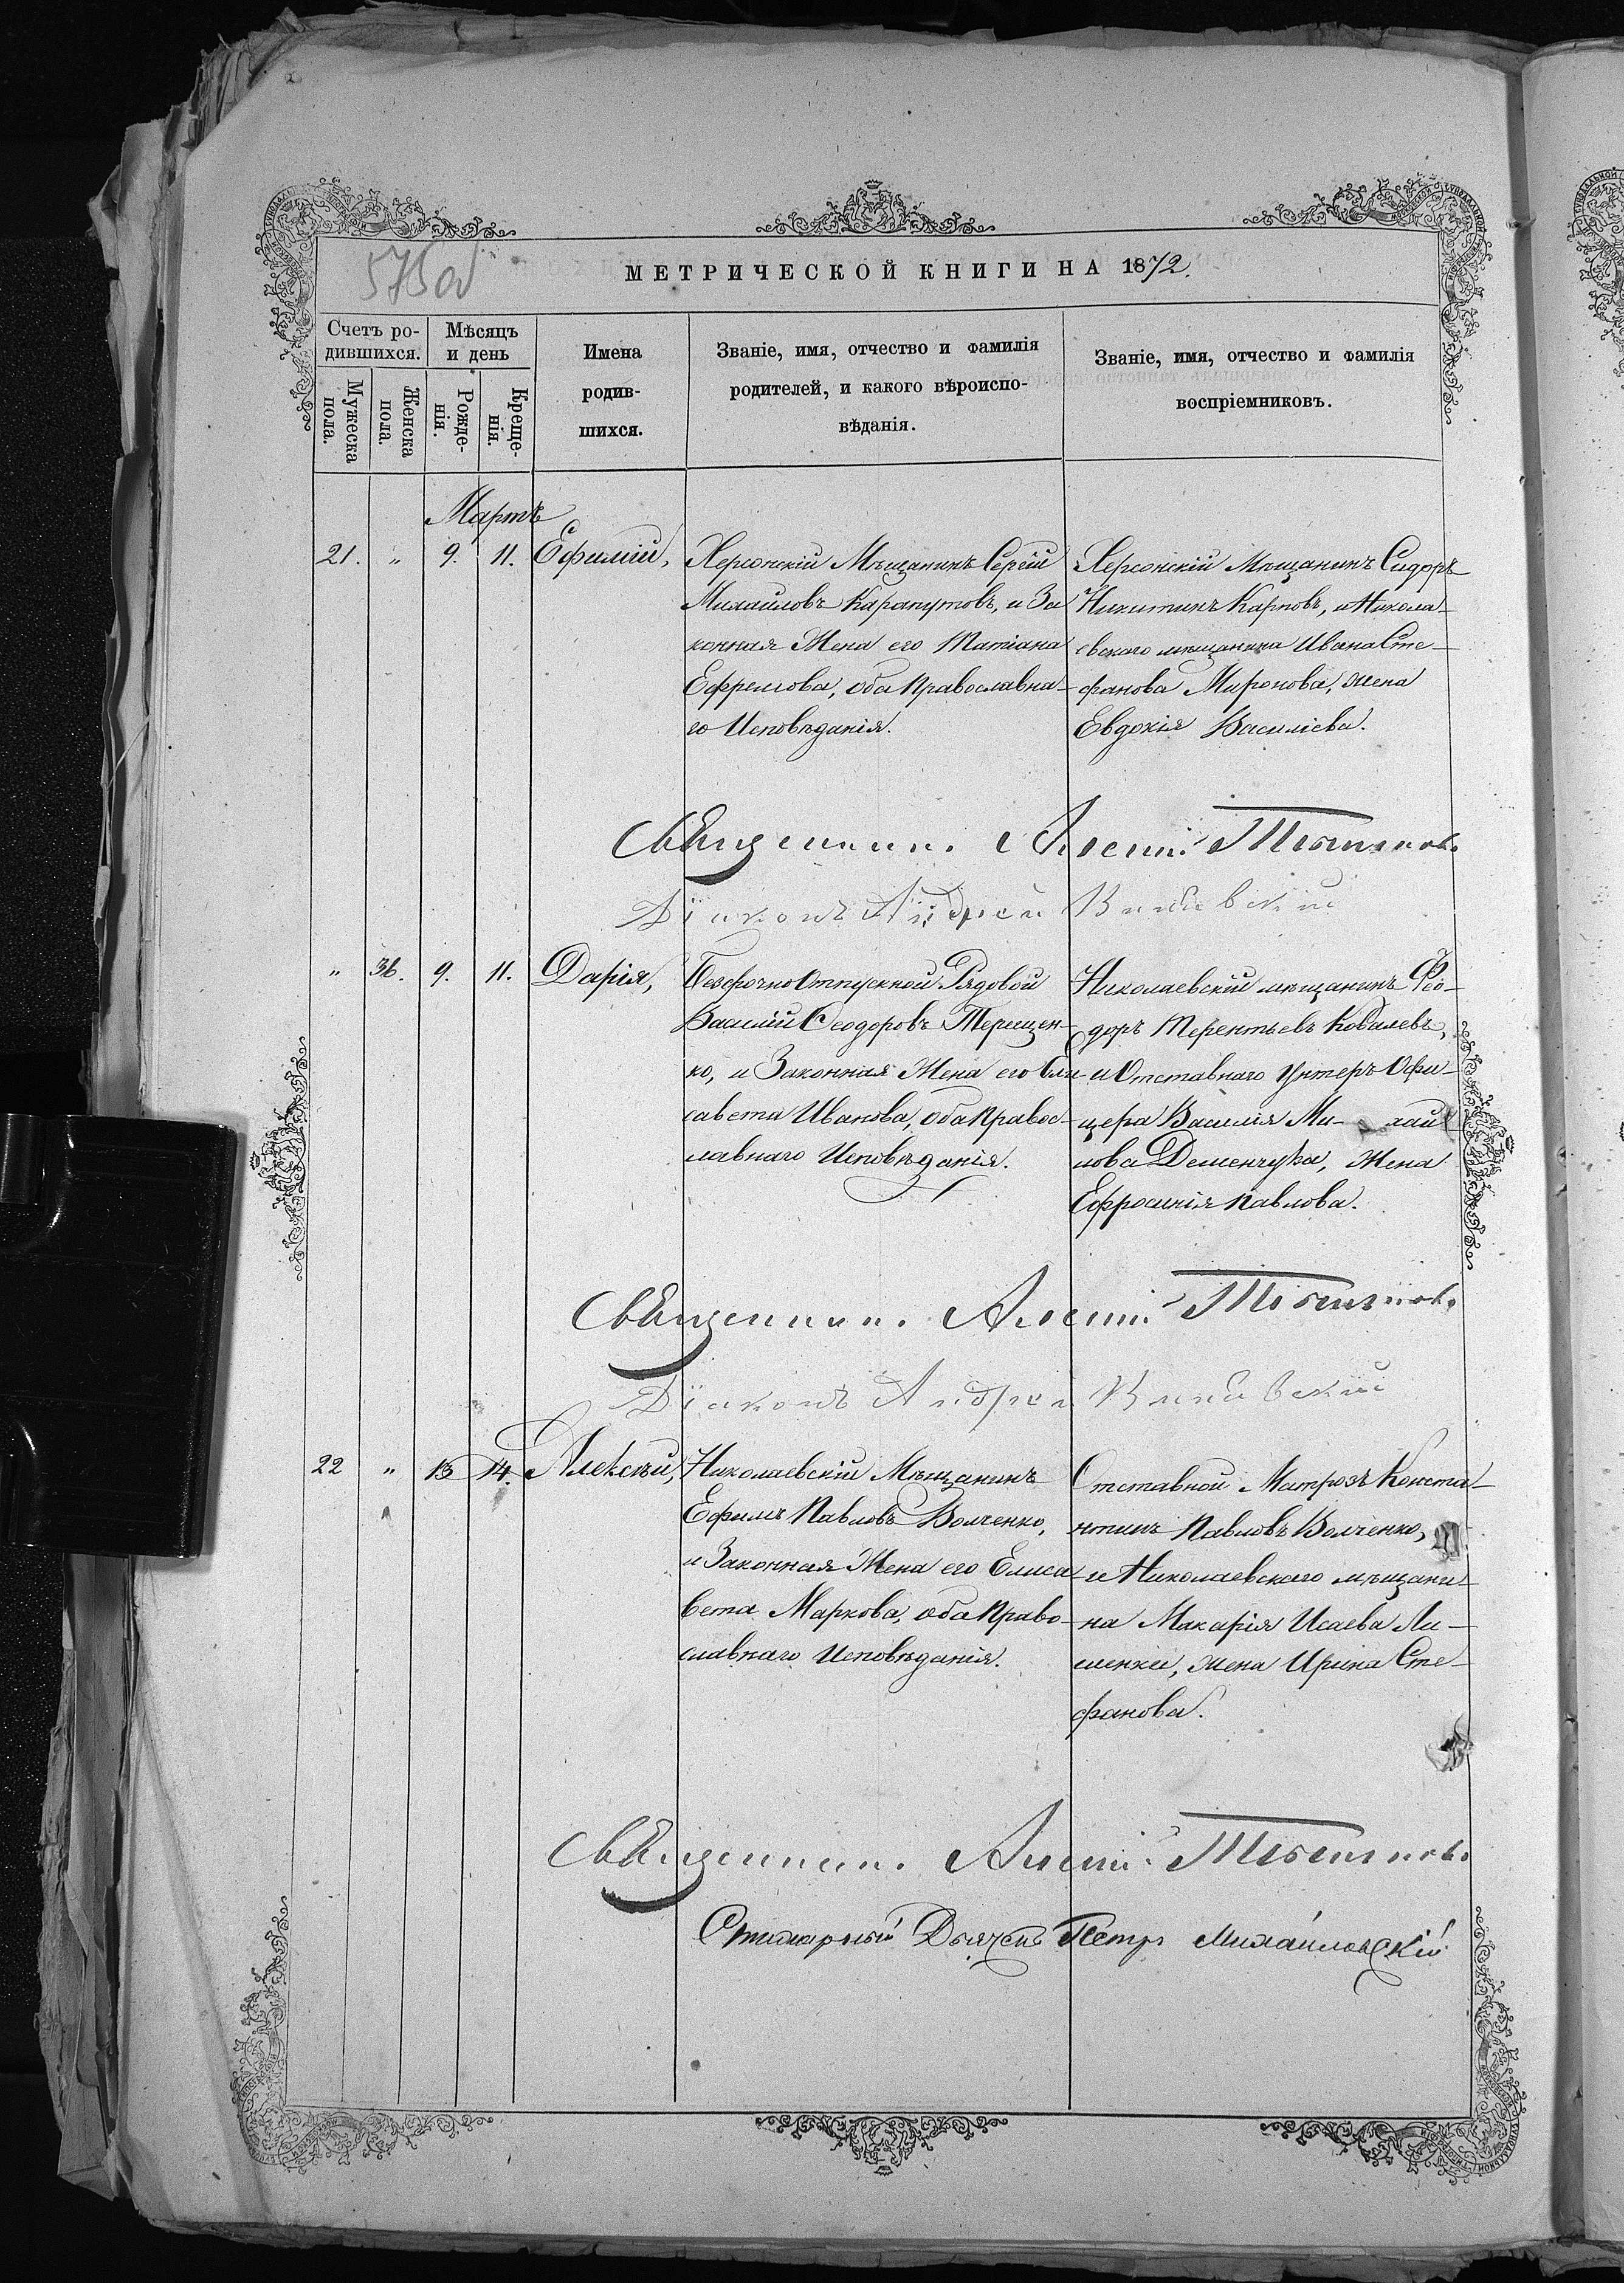 575об
МЕТРИЧЕСКОЙ КНИГИ НА 1872.
Счетъ ро-
дившихся.
Мѣсяцъ
и день
Мужеска
пола.
Женска
пола.
Рожде-
нія.
Креще-
нія.
Имена
родив-
шихся.
Званіе, имя, отчество и фамилія
родителей, и какого вѣроиспо-
вѣданія.
Званіе, имя, отчество и фамилія
воспріемниковъ.
Мартъ
21. „ 9. 11. Ефимій,
Херсонскій Мѣщанинъ Сергій
Михайловъ Карапутовъ, и За
конная Жена его Татіана
Ефремова, оба Православна-
го Исповѣданія.
Херсонскій Мѣщанинъ Сидоръ
Никитинъ Карповъ, и Никола-
евскаго мѣщанина Ивана Сте-
фанова Миронова, жена
Евдокія Василіева.
Священник
Діаконъ Андрей
„ 36. 9. 11. Дарія,
Безсрочноотпускной Рядовой
Василій Ѳеодоровъ Терещен-
ко, и Законная Жена его Ели
савета Иванова, оба Правос-
лавнаго Исповѣданія.
Николаевскій мѣщанинъ Фео-
доръ Терентьевъ Ковалевъ,
и Отставнаго Унтеръ Офи-
цера Василія Ми- хай
лова Деменчука, Жена
Ефросинія Павлова.
Священник
Діаконъ Андрей
22 „ 13 14. Алексѣй,
Николаевскій Мѣщанинъ
Ефимъ Павловъ Волченко,
и Законная Жена его Елиса
вета Маркова, оба Право-
славнаго Исповѣданія.
Отставной Матрозъ Конста-
нтинъ Павловъ Волченко,
и Николаевскаго мѣщани-
на Макарія Исаева Ли-
сенки, жена Ирина Сте-
фанова.
Священник
Дьячекъ Петръ Михайловскій